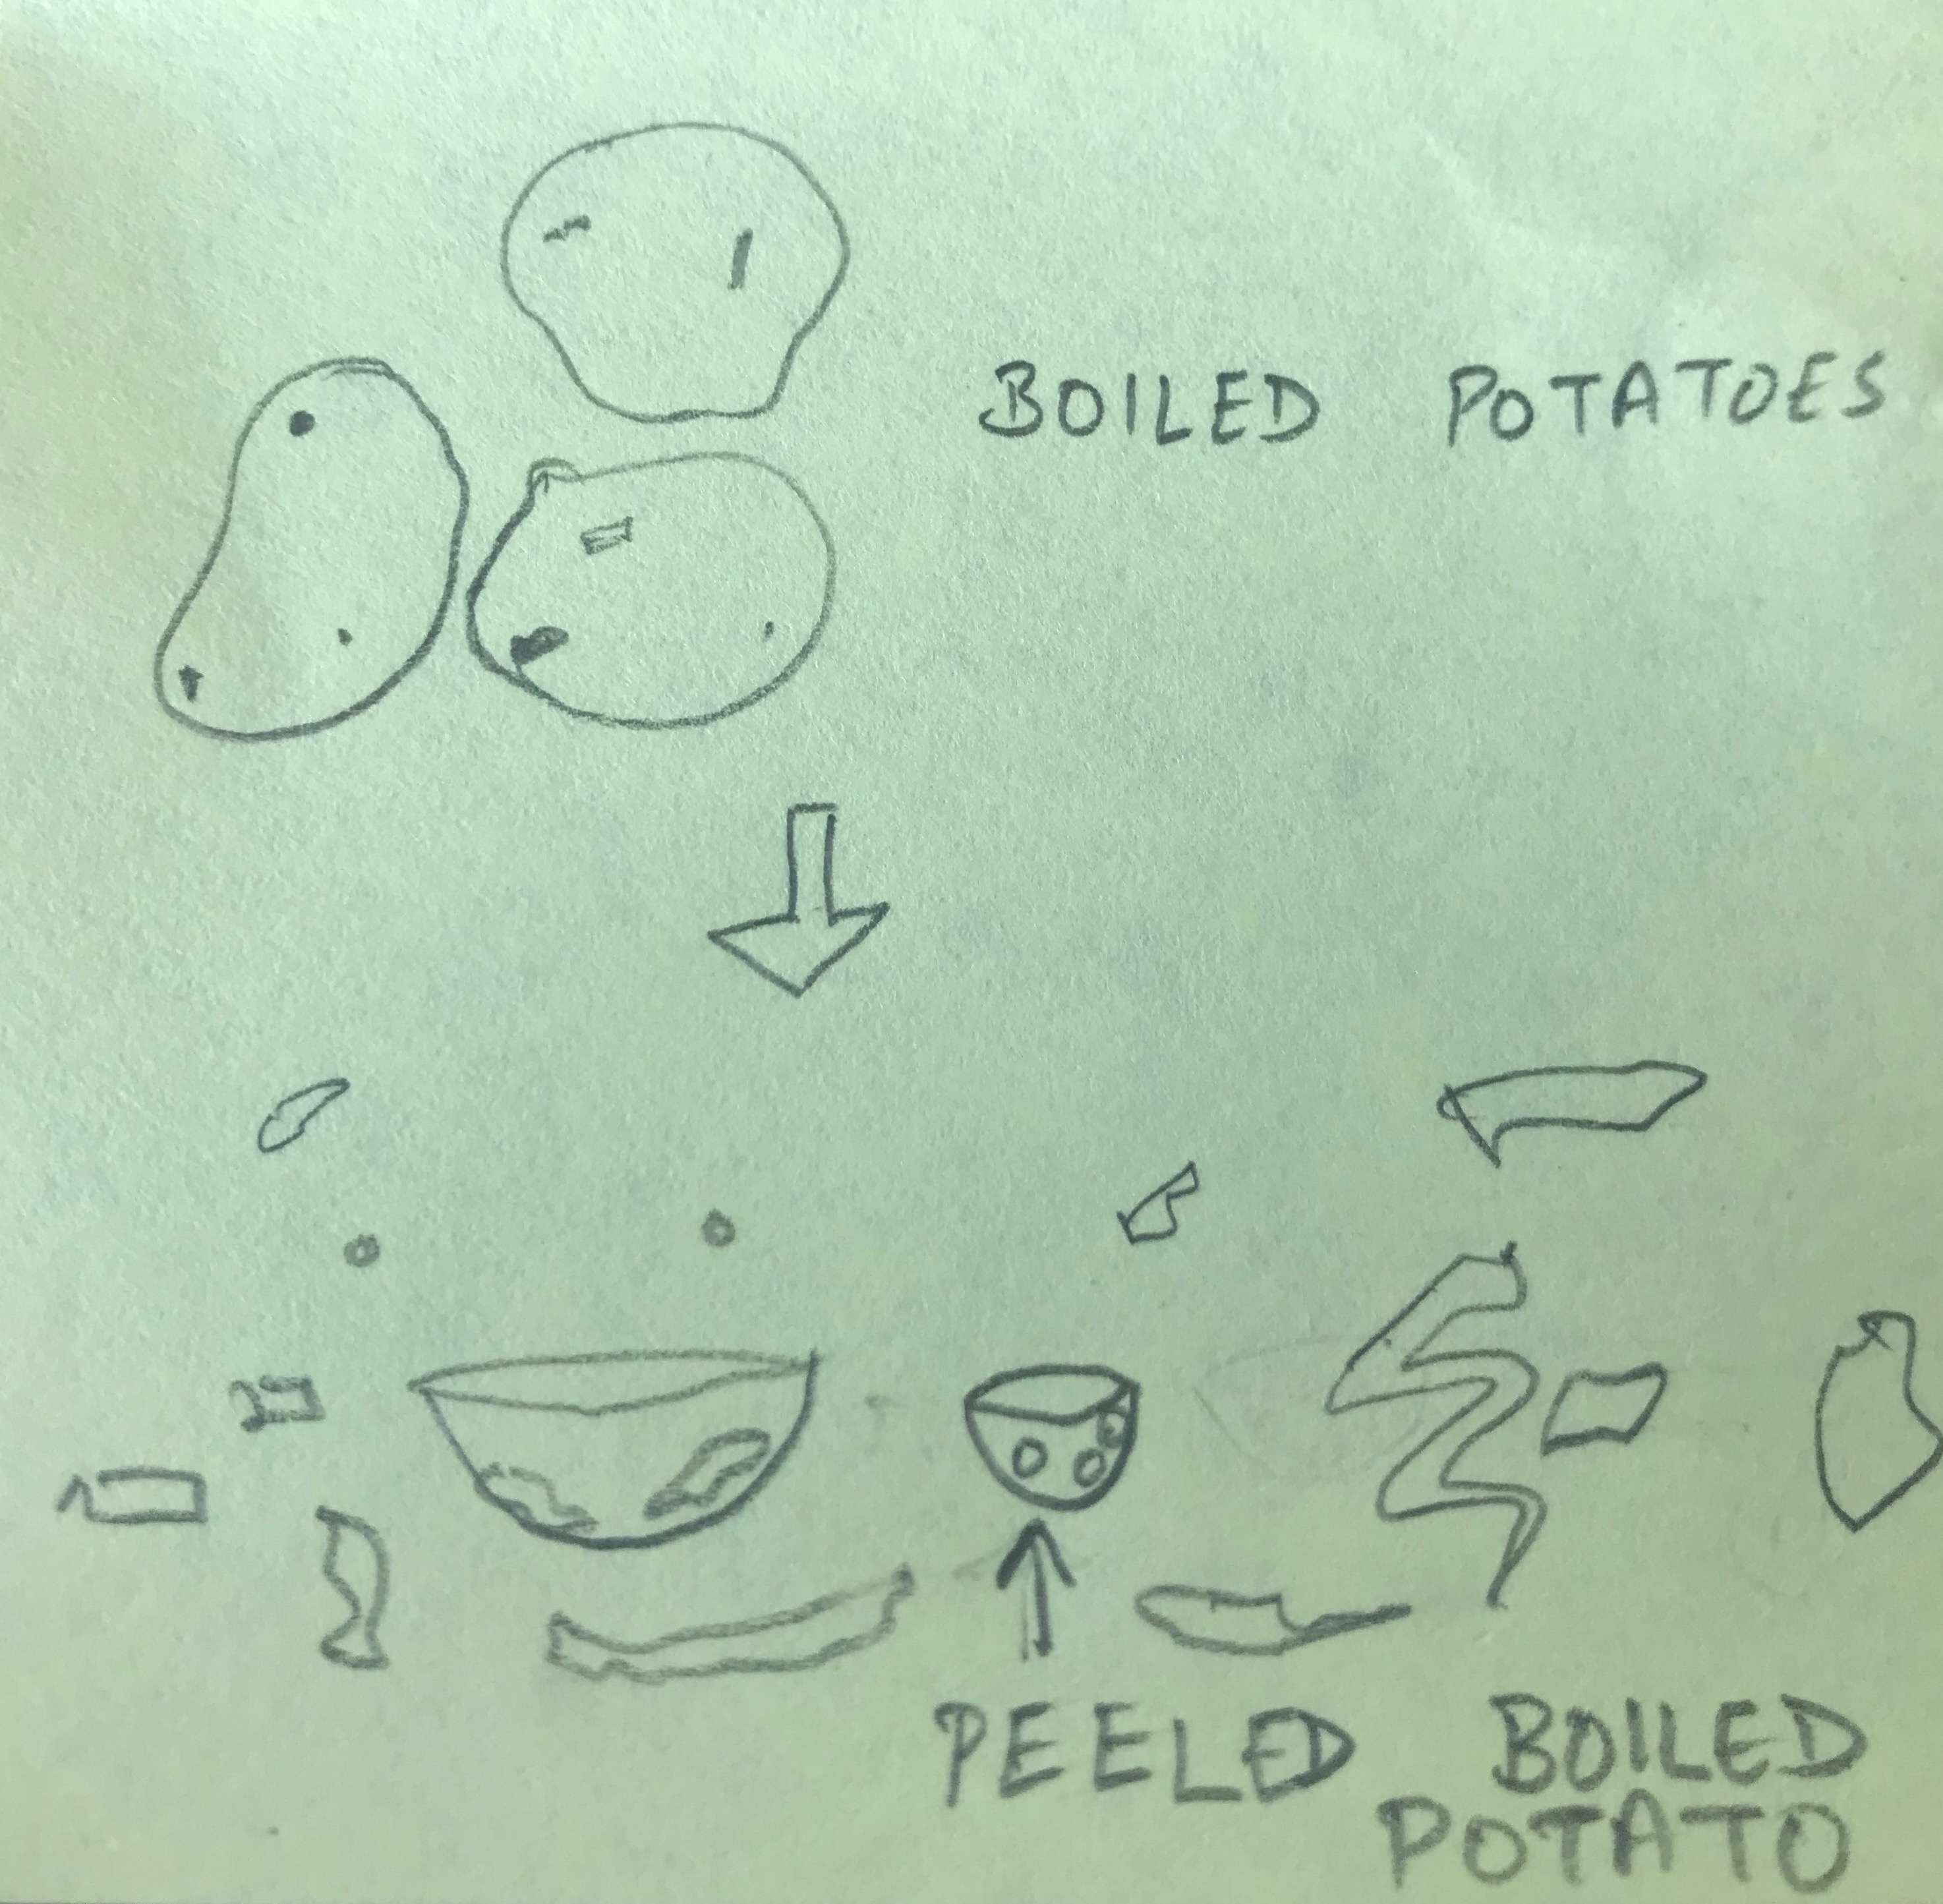 BOILED POTATOES
PEELED BOILED
POTATO